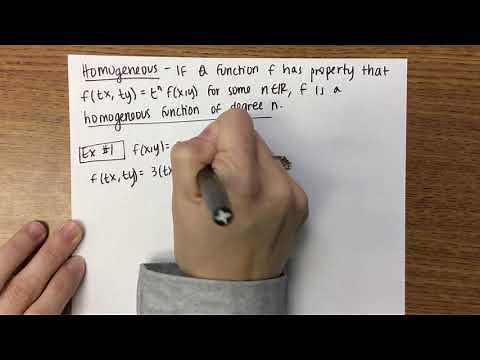 Homogeneous - If a function f has property that
f(tx, ty) = tⁿ f(x,y) for some n∈ℝ, f is a
homogeneous function of degree n.
Ex #1 f(x,y)=
f(tx,ty)= 3(tx